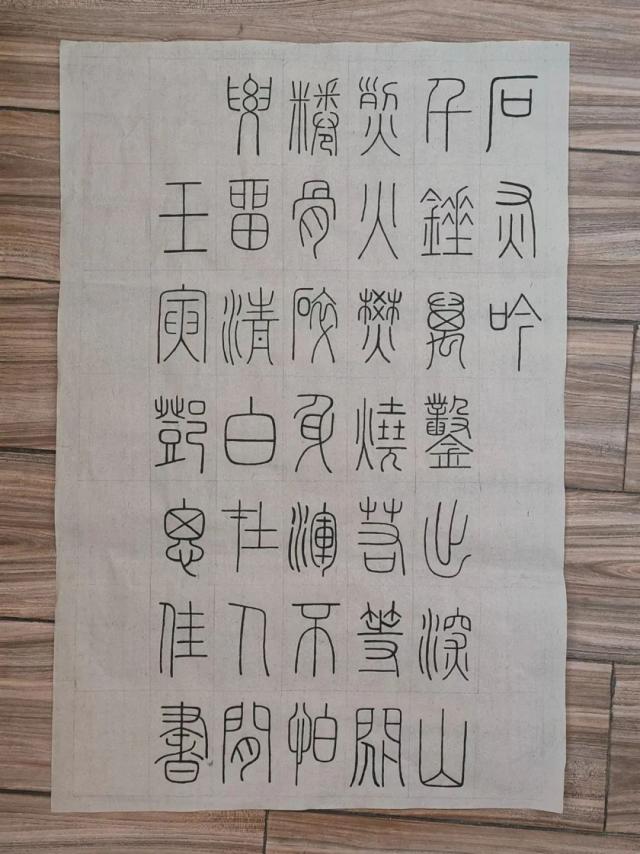 石灰吟
千錘萬鑿出深山
烈火焚燒若等閑
粉骨碎身渾不怕
要留清白在人間
壬寅鄧恩佳書